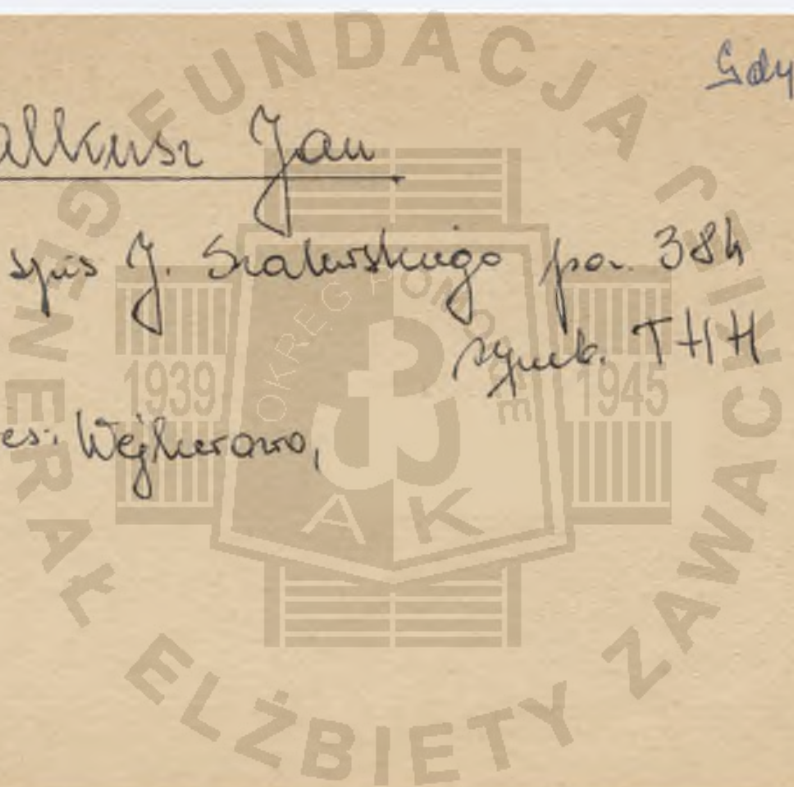 Gdy
alkusz Jan
spis J. Szalewskiego poz. 384
symb. THH
es: Wejherowo,
FUNDACJA
GENERAŁ ELŻBIETY ZAWACKIEJ
OKRĘG POMORZE
1939
1945
AK